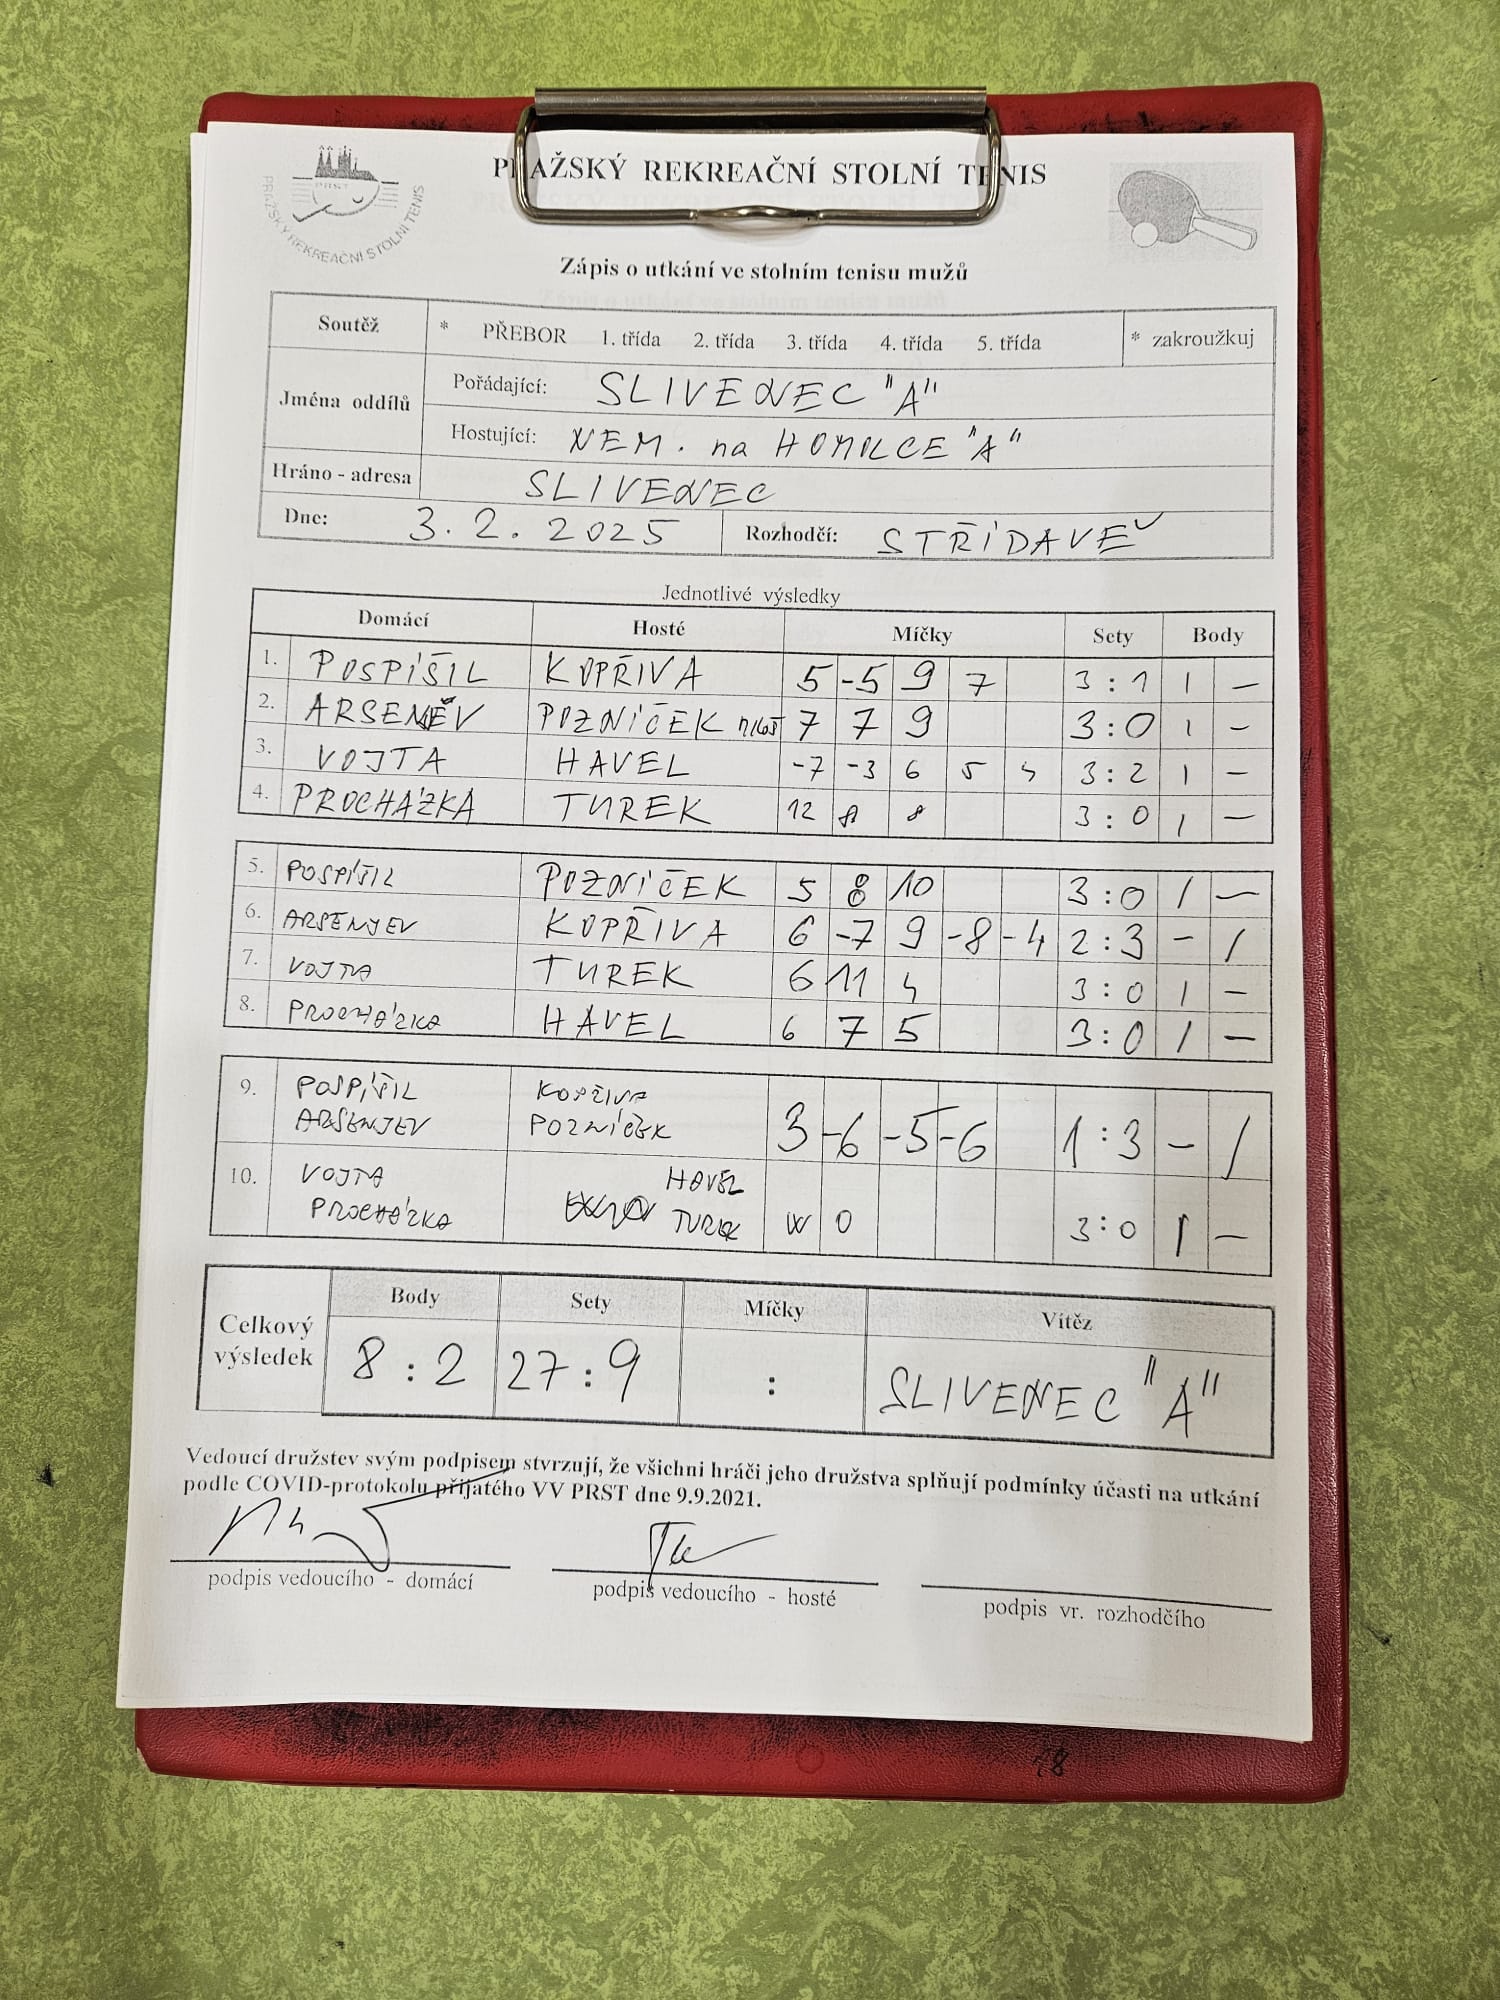 PRAŽSKÝ REKREAČNÍ STOLNÍ TENIS
PRST
PRAŽSKÝ REKREAČNÍ STOLNÍ TENIS
Zápis o utkání ve stolním tenisu mužů
Soutěž * PŘEBOR 1. třída 2. třída 3. třída 4. třída 5. třída * zakroužkuj
Jména oddílů
Pořádající: SLIVENEC "A"
Hostující: NEM. na HOMOLCE "A"
Hráno - adresa SLIVENEC
Dne: 3. 2. 2025 Rozhodčí: STŘÍDAVĚ
Jednotlivé výsledky
Domácí Hosté Míčky Sety Body
1. POSPÍŠIL KOPŘIVA 5 -5 9 7 3:1 1 -
2. ARSENĚV POZNÍČEK MILOŠ 7 7 9 3:0 1 -
3. VOJTA HAVEL -7 -3 6 5 4 3:2 1 -
4. PROCHÁZKA TUREK 12 8 8 3:0 1 -
5. POSPÍŠIL POZNÍČEK 5 8 10 3:0 1 -
6. ARSENJEV KOPŘIVA 6 -7 9 -8 -4 2:3 - 1
7. VOJTA TUREK 6 11 4 3:0 1 -
8. PROCHÁZKA HAVEL 6 7 5 3:0 1 -
9. POSPÍŠIL KOPŘIVA
ARSENJEV POZNÍČEK 3 -6 -5 -6 1:3 - 1
10. VOJTA HAVEL
PROCHÁZKA TUREK W O 3:0 1 -
Celkový výsledek
Body Sety Míčky Vítěz
8:2 27:9 : SLIVENEC "A"
Vedoucí družstev svým podpisem stvrzují, že všichni hráči jeho družstva splňují podmínky účasti na utkání
podle COVID-protokolu přijatého VV PRST dne 9.9.2021.
podpis vedoucího - domácí podpis vedoucího - hosté podpis vr. rozhodčího
18